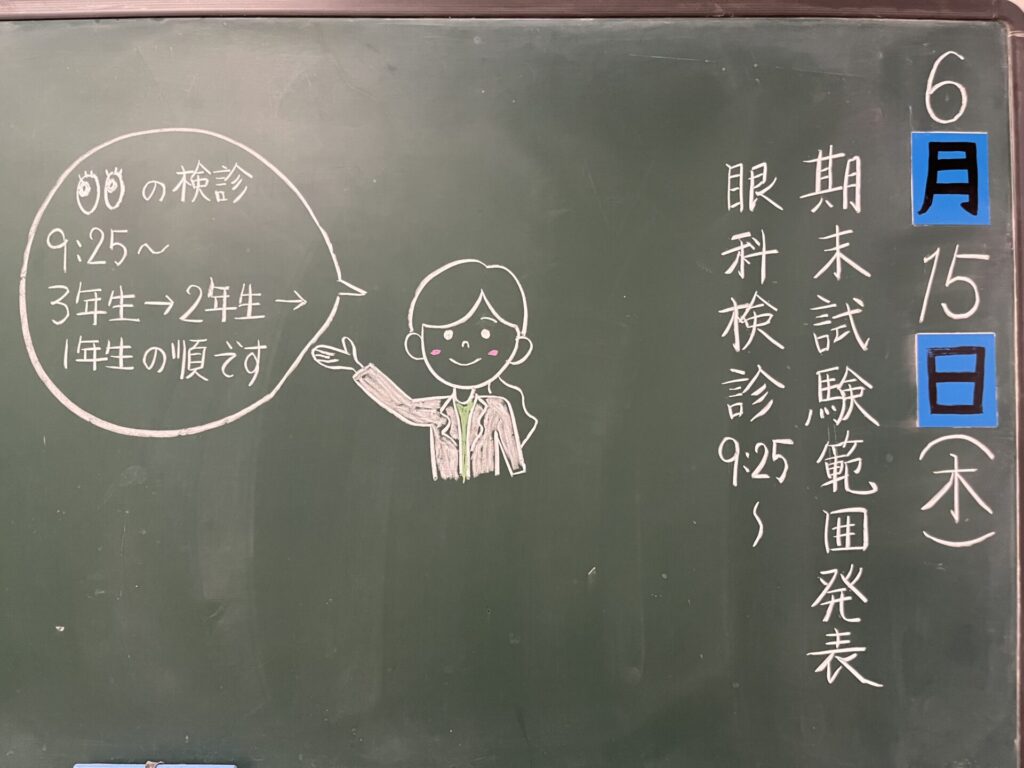 6月15日(木)
期末試験範囲発表
眼科検診9:25~
の検診
9:25~
3年生→2年生→
1年生の順です